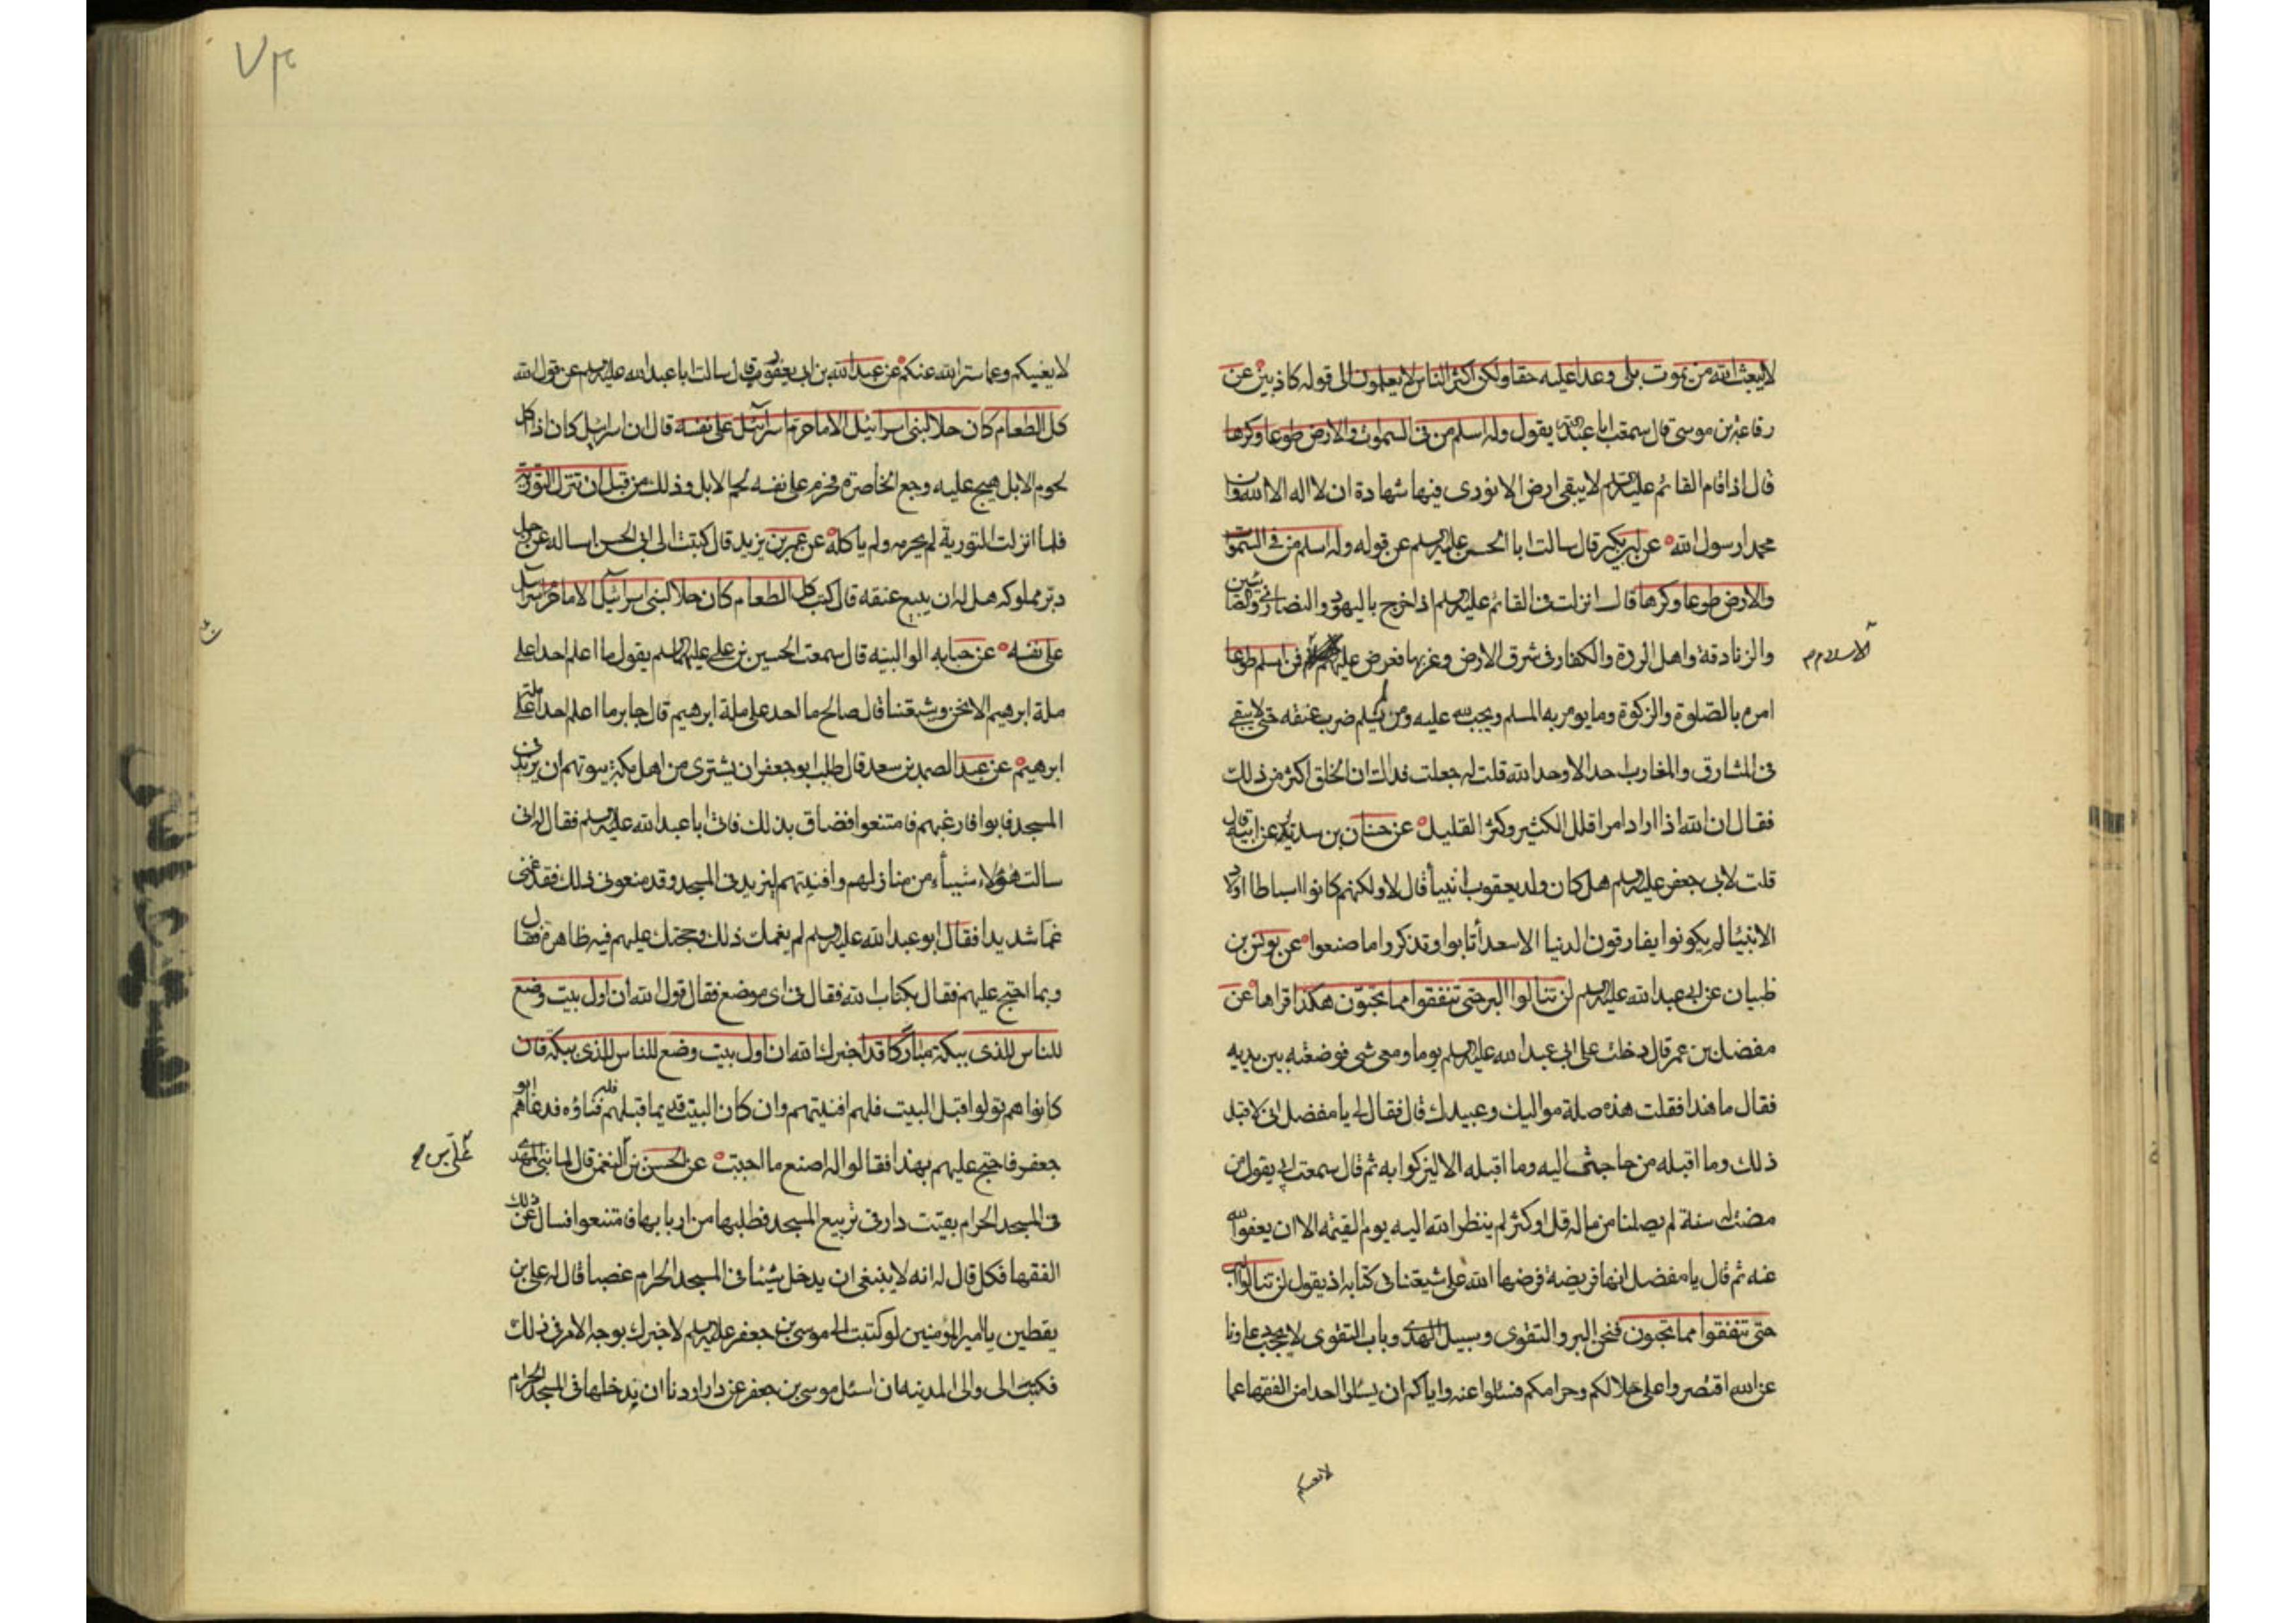 لا يبعث الله من يموت بلى وعدا عليه حقا ولكن اكثر الناس لا يعلمون الى قوله كاذبين عن
رفاعة بن موسى قال سمعت ابا عبد الله يقول وله اسلم من فى السموات والارض طوعا وكرها
قال اذا قام القائم عليه السلم لا يبقى ارض الا نودى فيها شهادة ان لا اله الا الله وان
محمدا رسول الله عن ابن بكير قال سالت ابا الحسن عليه السلم عن قوله وله اسلم من فى السموات
والارض طوعا وكرها قال انزلت فى القائم عليه السلم اذا خرج باليهود والنصارى والصابئين
والزنادقة واهل الردة والكفار فى شرق الارض وغربها فعرض عليهم فمن اسلم طوعا
الاسلام م
امره بالصلوة والزكوة وما يومر به المسلم ويجب لله عليه ومن لم يسلم ضرب عنقه حتى لا يبقى
فى المشارق والمغارب احد الا وحد الله قلت له جعلت فداك ان الخلق اكثر من ذلك
فقال ان الله اذا اراد امرا قلل الكثير وكثر القليل عن حنان بن سدير عن ابيه قال
قلت لابى جعفر عليه السلم هل كان ولد يعقوب انبيأ قال لا ولكنهم كانوا اسباطا اولاد
الانبيا لم يكونوا يفارقون الدنيا الا سعدأ تابوا وتذكروا ما صنعوا عن يونس بن
ظبيان عن ابى عبد الله عليه السلم لن تنالوا البر حتى تنفقوا مما تحبون هكذا قراها عن
مفضل بن عمر قال دخلت على ابى عبد الله عليه السلم يوما ومعى شى فوضعته بين يديه
فقال ما هذا فقلت هذه صلة مواليك وعبيدك قال فقال لى يا مفضل انى لاقبل
ذلك وما اقبله من حاجتى اليه وما اقبله الا ليزكوا به ثم قال سمعت ابى يقول من
مضت له سنة لم يصلنا من ماله قل او كثر لم ينظر الله اليه يوم القيمة الا ان يعفوا الله
عنه ثم قال يا مفضل انها فريضة فرضها الله على شيعتنا فى كتابه اذ يقول لن تنالوا البر
حتى تنفقوا مما تحبون فنحن البر والتقوى وسبيل الهدى وباب التقوى لا يحجب دعاونا
عن الله اقتصروا على حلالكم وحرامكم فسئلوا عنه واياكم ان يسئلوا احدا من الفقها عما
لا يعنيكم
٧٣
لا يعنيكم وعما ستر الله عنكم عن عبد الله بن ابى يعفور قال سالت ابا عبد الله عليه السلم عن قول الله
كل الطعام كان حلا لبنى اسرائيل الا ما حرم اسرائيل على نفسه قال ان اسرائيل كان اذا اكل
لحوم الابل هيج عليه وجع الخاصرة فحرم على نفسه لحم الابل وذلك من قبل ان تنزل التورية
فلما انزلت التورية لم يحرمه ولم ياكله عن عمر بن يزيد قال كتبت الى ابى الحسن اساله عن رجل
دبر مملوكه هل له ان يبيع عنقه قال كتب كل الطعام كان حلا لبنى اسرائيل الا ما حرم اسرائيل
على نفسه عن حبابه الوالبيه قال سمعت الحسين بن على عليهما السلم يقول ما اعلم احدا على
ملة ابرهيم الا نحن وشيعتنا قال صالح ما احد على ملة ابرهيم قال جابر ما اعلم احدا على ملة
ابرهيم عن عبد الصمد بن سعد قال طلب ابو جعفر ان يشترى من اهل مكة بيوتهم ان يزيد فى
المسجد فابوا فارغبهم فامتنعوا فضاق بذلك فاتى ابا عبد الله عليه السلم فقال له انى
سالت هؤلاء شيئأ من منازلهم وافنيتهم لنزيد فى المسجد وقد منعونى ذلك فقد غمنى
غما شديدا فقال ابو عبد الله عليه السلم لم يغمك ذلك وحجتك عليهم فيه ظاهرة فقال
وبما احتج عليهم فقال بكتاب الله فقال فى اى موضع فقال قول الله ان اول بيت وضع
للناس للذى ببكة مباركا قد اخبرك الله ان اول بيت وضع للناس للذى ببكة فان
كانوا هم تولوا قبل البيت فلهم افنيتهم وان كان البيت قديما قبلهم فله فناؤه فدعاهم ابو
جعفر فاحتج عليهم بهذا فقالوا له اصنع ما احببت عن الحسن بن النعمن قال لما بنى المهدى
على بن م
فى المسجد الحرام بقيت دار فى تربيع المسجد فطلبها من اربابها فامتنعوا فسال عن ذلك
الفقها فكل قال له انه لا ينبغى ان يدخل شيئا فى المسجد الحرام غصبا قال له على بن
يقطين يا امير المؤمنين لو كتبت الى موسى بن جعفر عليه السلم لاخبرك بوجه الامر فى ذلك
فكتب الى والى المدينه ان اسئل موسى بن جعفر عن دار اردنا ان ندخلها فى المسجد الحرام